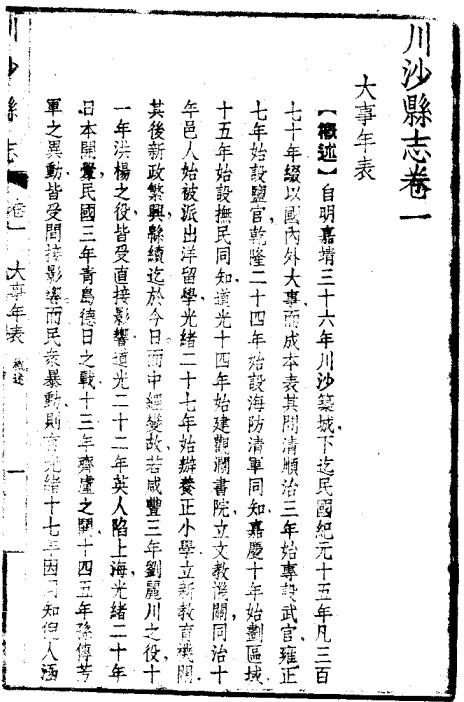 川沙縣志卷一
大事年表
【概述】自明嘉靖三十六年川沙築城下迄民國紀元十五年凡三百
七十年綴以國內外大事而成本表其間清順治三年始專設武官雍正
七年始設鹽官乾隆二十四年始設海防清軍同知嘉慶十年始劃區域
十五年始設撫民同知道光十四年始建觀瀾書院立文教機關同治十
年邑人始被派出洋留學光緒二十七年始辦養正小學立新教育機關
其後新政繁興縣績迄於今日而中經變故若咸豐三年劉麗川之役十
一年洪楊之役皆受直接影響道光二十二年英人陷上海光緒二十年
日本開釁民國三年青島德日之戰十三年齊盧之鬩十四五年孫傳芳
軍之異動皆受間接影響而民衆暴動則有光緒十七年因同知倪人涵
川沙縣志
卷一 大事年表 概述 一